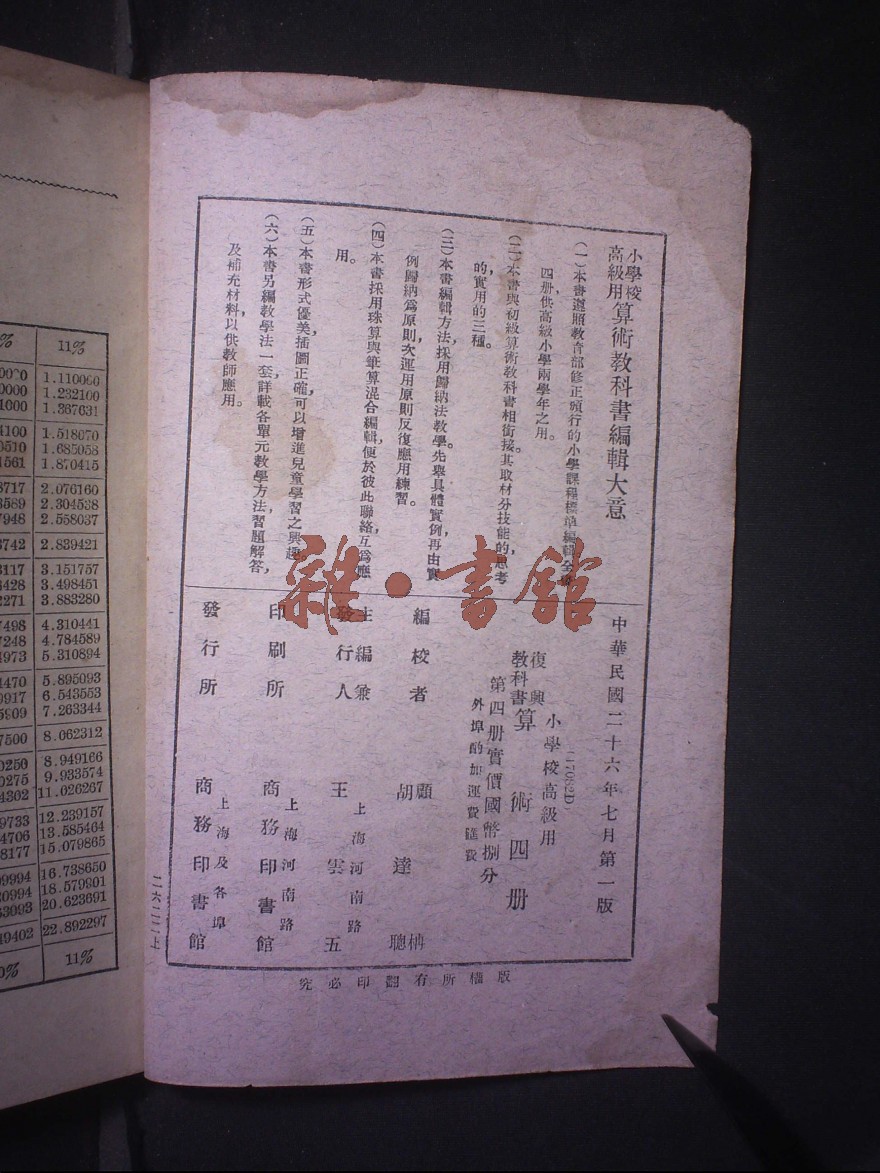 小學校
高級用
算術教科書編輯大意
(一)本書遵照教育部修正頒行的小學課程標準編輯全
四册供高級小學兩學年之用。
(二)本書與初級算術教科書相銜接。其取材分技能的,思考
的,實用的三種。
(三)本書編輯方法,採用歸納法教學。先舉具體實例,再由實
例歸納爲原則,次運用原則反復應用練習。
(四)本書採用珠算與筆算混合編輯,便於彼此聯絡互爲應
用。
(五)本書形式優美,插圖正確,可以增進兒童學習之興趣。
(六)本書另編教學法一套,詳載各單元教學方法,習題解答,
及補充材料,以供教師應用。
中華民國二十六年七月第一版
小學校高級用
復興
教科書
算術四册
第四册實價國幣捌分
外埠酌加運費匯費
編校者
顧
柟
胡達聰
主編兼
發行人
上海河南路
王雲五
印刷所
上海河南路
商務印書館
發行所
上海及各埠
商務印書館
版權所有翻印必究
二六二二上
雜·書館
%
11%
1.110000
1.232100
1.367631
4100 1.518070
0510 1.685058
1561 1.870415
8717 2.076160
3589 2.304538
7948 2.558037
3742 2.839421
3117 3.151757
4428 3.498451
2271 3.883280
7498 4.310441
7248 4.784589
4973 5.310894
4470 5.895093
0917 6.543553
5909 7.263344
7500 8.062312
0250 8.949166
0275 9.933574
4302 11.026267
9733 12.239157
4706 13.585464
8177 15.079865
09994 16.738650
20994 18.579901
33093 20.623691
49402 22.892297
0%
11%